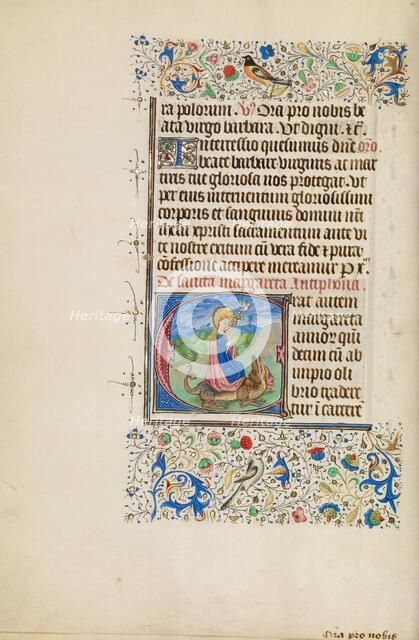 ra polorum. V Ora pro nobis be
ata virgo barbara. Ut digni. &c̄.
Intercessio quesumus dn̄e oro.
beate barbare virginis ac mar
tiris tue gloriosa nos protegat. ut
per eius interuentum gloriosissimi
corporis et sanguinis domini nr̄i
ihesu xpristi sacramentum ante vi
te nostre exitum cū vera fide & pura
cōfessione accipere mereamur P x̄
De sancta margareta Antiphona
Erat autem
margareta
annor̄ qui
decim cū ab
impio oli
brio trade
tur ī carcere
Ora pro nobis
Heritage Images